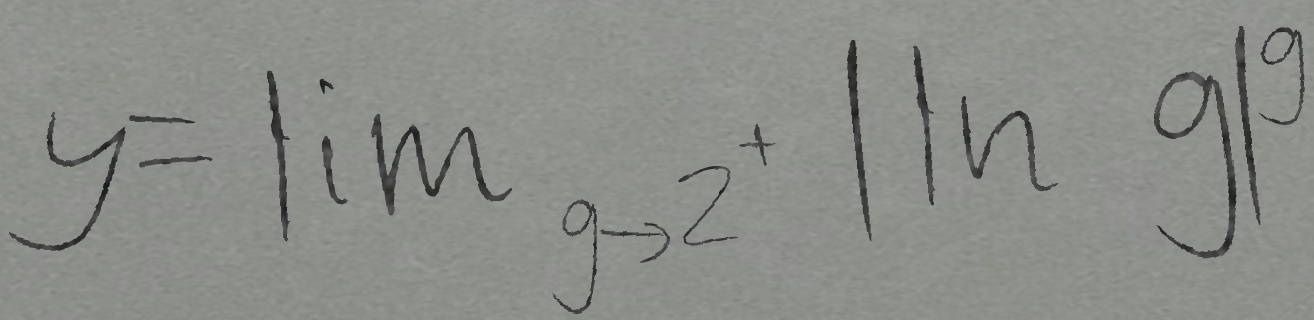 y = lim_{g→2^+} |ln g|^g